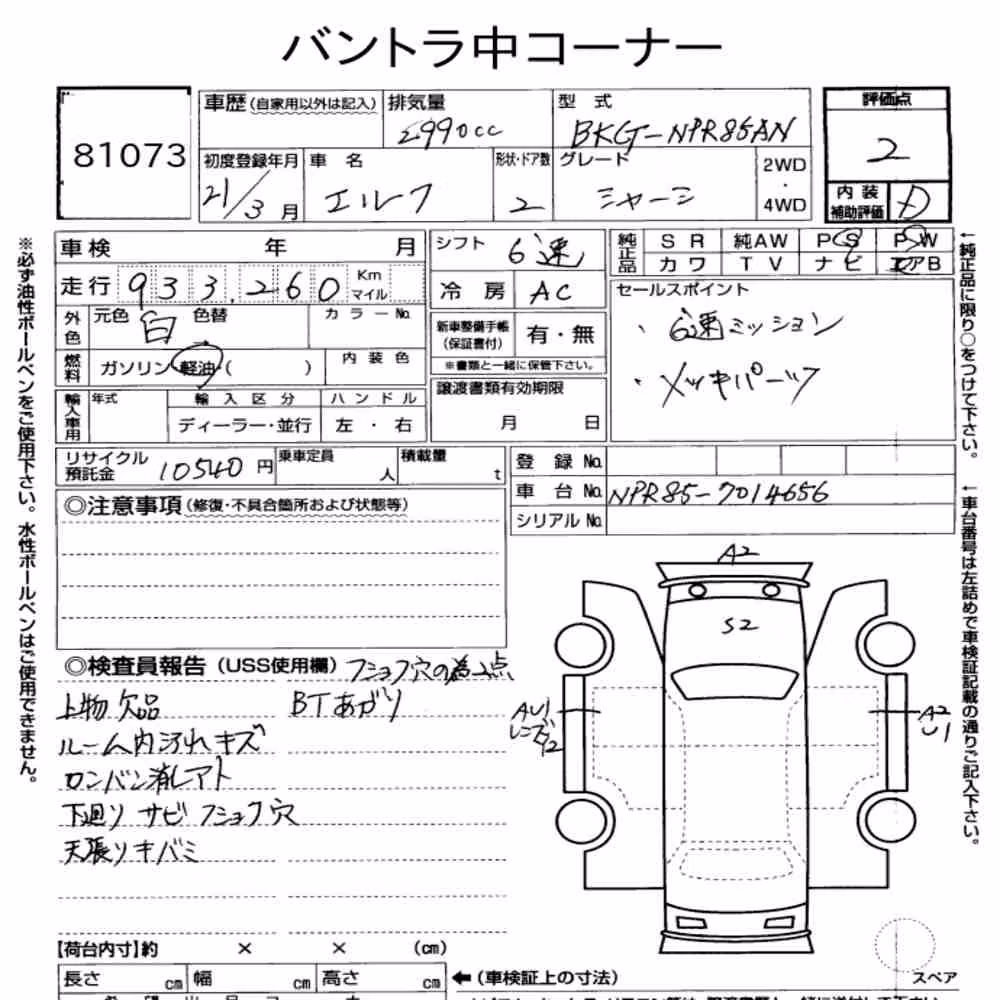 バントラ中コーナー
81073
車歴(自家用以外は記入) 排気量 2990cc 型式 BKG-NPR85AN
評価点 2
初度登録年月 21/3月 車名 エルフ 形状・ドア数 2 グレード シャーシ 2WD・4WD
内装補助評価 D
車検 年 月
走行 933,260 Km マイル
外色 元色 白 色替 カラーNo.
燃料 ガソリン 軽油 ( ) 内装色
輸入車用 年式 輸入区分 ハンドル
ディーラー・並行 左・右
リサイクル預託金 10540円 乗車定員 人 積載量 t
シフト 6速
冷房 AC
新車整備手帳(保証書付) 有・無
※書類と一緒に保管下さい。
譲渡書類有効期限
月 日
純正品 SR 純AW PS PW
カワ TV ナビ エアB
セールスポイント
・6速ミッション
・メッキパーツ
登録No.
車台No. NPR85-7014656
シリアルNo.
◎注意事項(修復・不具合箇所および状態等)
◎検査員報告(USS使用欄)
上物欠品 BTあがり
ルーム内汚れキズ
ロンバン消しアト
下廻りサビフショク穴
天張りキバミ
フショク穴の為2点
A2
S2
AU1
A2
U1
スペア
【荷台内寸】約 × × (cm)
長さ cm 幅 cm 高さ cm ←(車検証上の寸法)
※必ず油性ボールペンをご使用下さい。水性ボールペンはご使用できません。
←純正品に限り○をつけて下さい。
←車台番号は左詰めで車検証記載の通りご記入下さい。